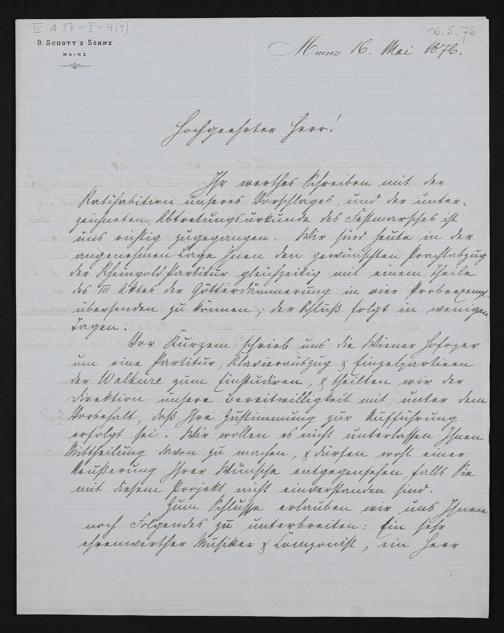 IV A 37-I-4(9)
16.5.76
B. SCHOTT'S SÖHNE
MAINZ
Mainz 16. Mai 1876.
Hochgeehrter Herr!
Ihr werthes Schreiben mit der
Ratihabition unseres Vorschlages, und der unter-
zeichneten Abtretungsurkunde des Festmarsches ist
uns richtig zugegangen. Wir sind heute in der
angenehmen Lage Ihnen den gewünschten
der Rheingold Partitur gleichzeitig mit einem Theile
des III Aktes der Götterdämmerung in vier
übersenden zu können; der Schluß folgt in wenigen
Tagen.
Vor Kurzem schrieb uns die Wiener Hofoper
um eine Partitur, Klavierauszug & Einzelpartieen
der Walküre zum Einstudiren, & theilten wir der
Direktion unsere Bereitwilligkeit mit, unter dem
Vorbehalt, daß Ihre Zustimmung zur Aufführung
erfolgt sei. Wir wollen es nicht unterlassen Ihnen
Mittheilung davon zu machen, & dürfen wohl einer
Äußerung Ihrer Wünsche entgegensehen, falls Sie
mit diesem Projekt nicht einverstanden sind.
Zum Schlusse erlauben wir uns Ihnen
noch Folgendes zu unterbreiten: Ein sehr
ehrenwerther Musiker & Componist, ein Herr